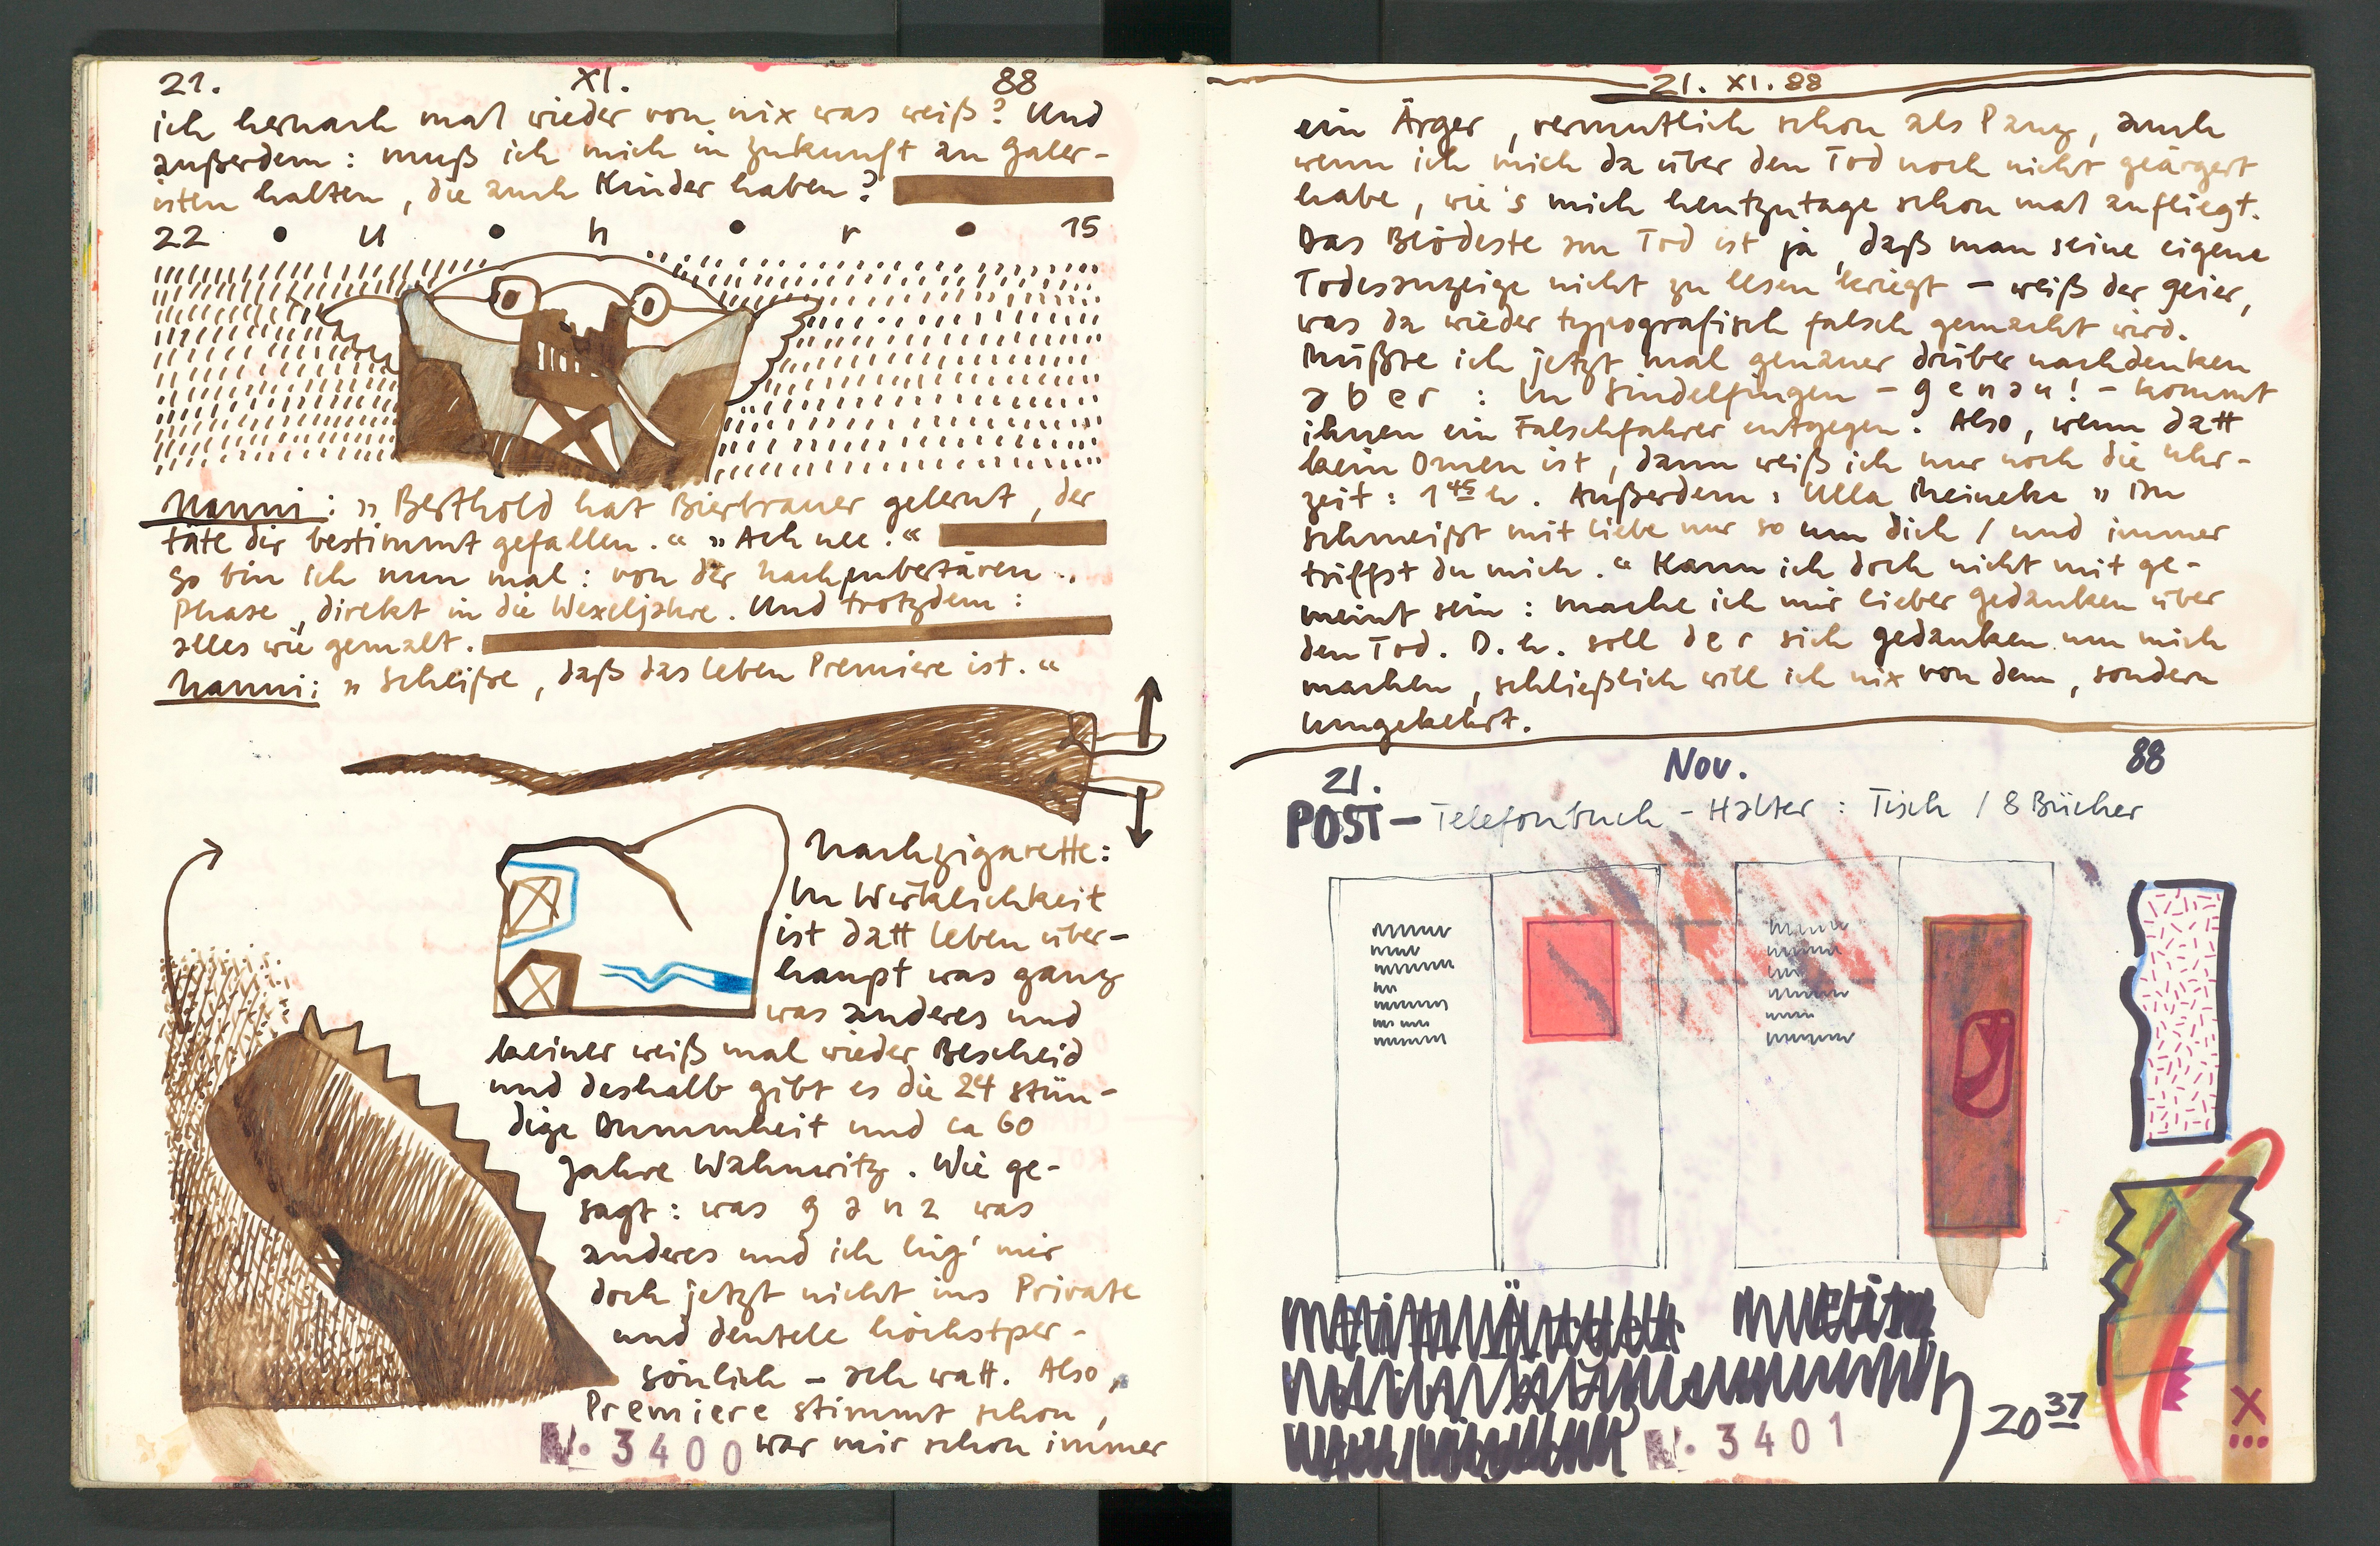 21. XI. 88
ich hernach mal wieder von nix was weiß? Und
außerdem: muß ich mich in Zukunft an Galer-
isten halten, die auch Kinder haben?
22 • U • h • r • 15
Nanni: „Berthold hat Bierbrauer gelernt, der
täte dir bestimmt gefallen.“ „Ach nee.“
So bin ich nun mal: von der nachpubertären
Phase, direkt in die Wexeljahre. Und trotzdem:
alles wie gemalt.
Nanni: „Scheiße, daß das Leben Premiere ist.“
Nachzigarette:
In Wirklichkeit
ist datt Leben über-
haupt was ganz
was anderes und
keiner weiß mal wieder Bescheid
und deshalb gibt es die 24 stün-
dige Dummheit und ca 60
Jahre Wahnwitz. Wie ge-
sagt: was g a n z was
anderes und ich lüg' mir
doch jetzt nicht ins Private
und deutele höchstper-
sönlich – ach watt. Also,
Premiere stimmt schon,
war mir schon immer
N. 3400
21. XI. 88
ein Ärger, vermutlich schon als Panz, auch
wenn ich mich da über den Tod noch nicht geärgert
habe, wie's mich heutzutage schon mal anfliegt.
Das Blödeste am Tod ist ja, daß man seine eigene
Todesanzeige nicht zu lesen kriegt – weiß der Geier,
was da wieder typografisch falsch gemacht wird.
Müßte ich jetzt mal genauer drüber nachdenken
a b e r : In Sindelfingen – g e n a u ! – kommt
ihnen ein Falschfahrer entgegen. Also, wenn datt
kein Omen ist, dann weiß ich nur noch die Uhr-
zeit: 1 45 h. Außerdem: Ulla Meineke „Du
schmeißt mit Liebe nur so um dich / und immer
triffst du mich.“ Kann ich doch nicht mit ge-
meint sein: mache ich mir lieber Gedanken über
den Tod. D.h. soll d e r sich Gedanken um mich
machen, schließlich will ich nix von dem, sondern
umgekehrt.
21. Nov. 88
POST – Telefonbuch - Halter: Tisch / 8 Bücher
20 37
N. 3401